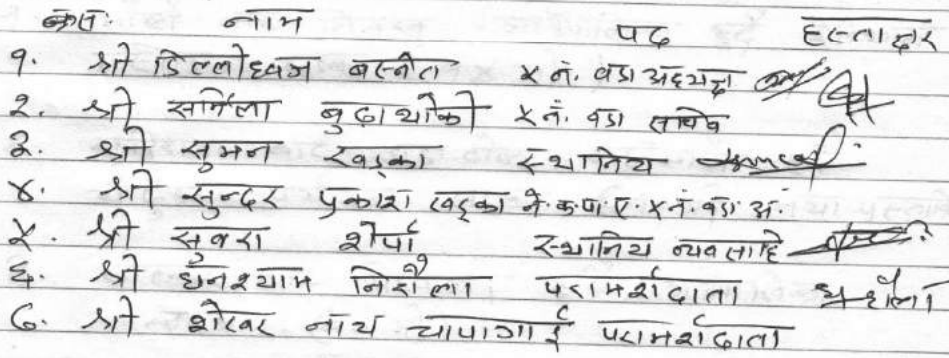 क्र.सं. नाम पद हस्ताक्षर
१. श्री डिल्लीध्वज बस्नेत ५ नं. वडा अध्यक्ष
२. श्री सर्मिला बुढाथोकी ५ नं. वडा सचिव
३. श्री सुमन खड्का स्थानिय
४. श्री सुन्दर प्रकाश खड्का ने.क.पा.ए. ५ नं. वडा अ.
५. श्री सुवरा शेर्पा स्थानिय व्यवसाहि
६. श्री घनश्याम निरौला परामर्शदाता
७. श्री शेखर नाथ चापागाईं परामर्शदाता